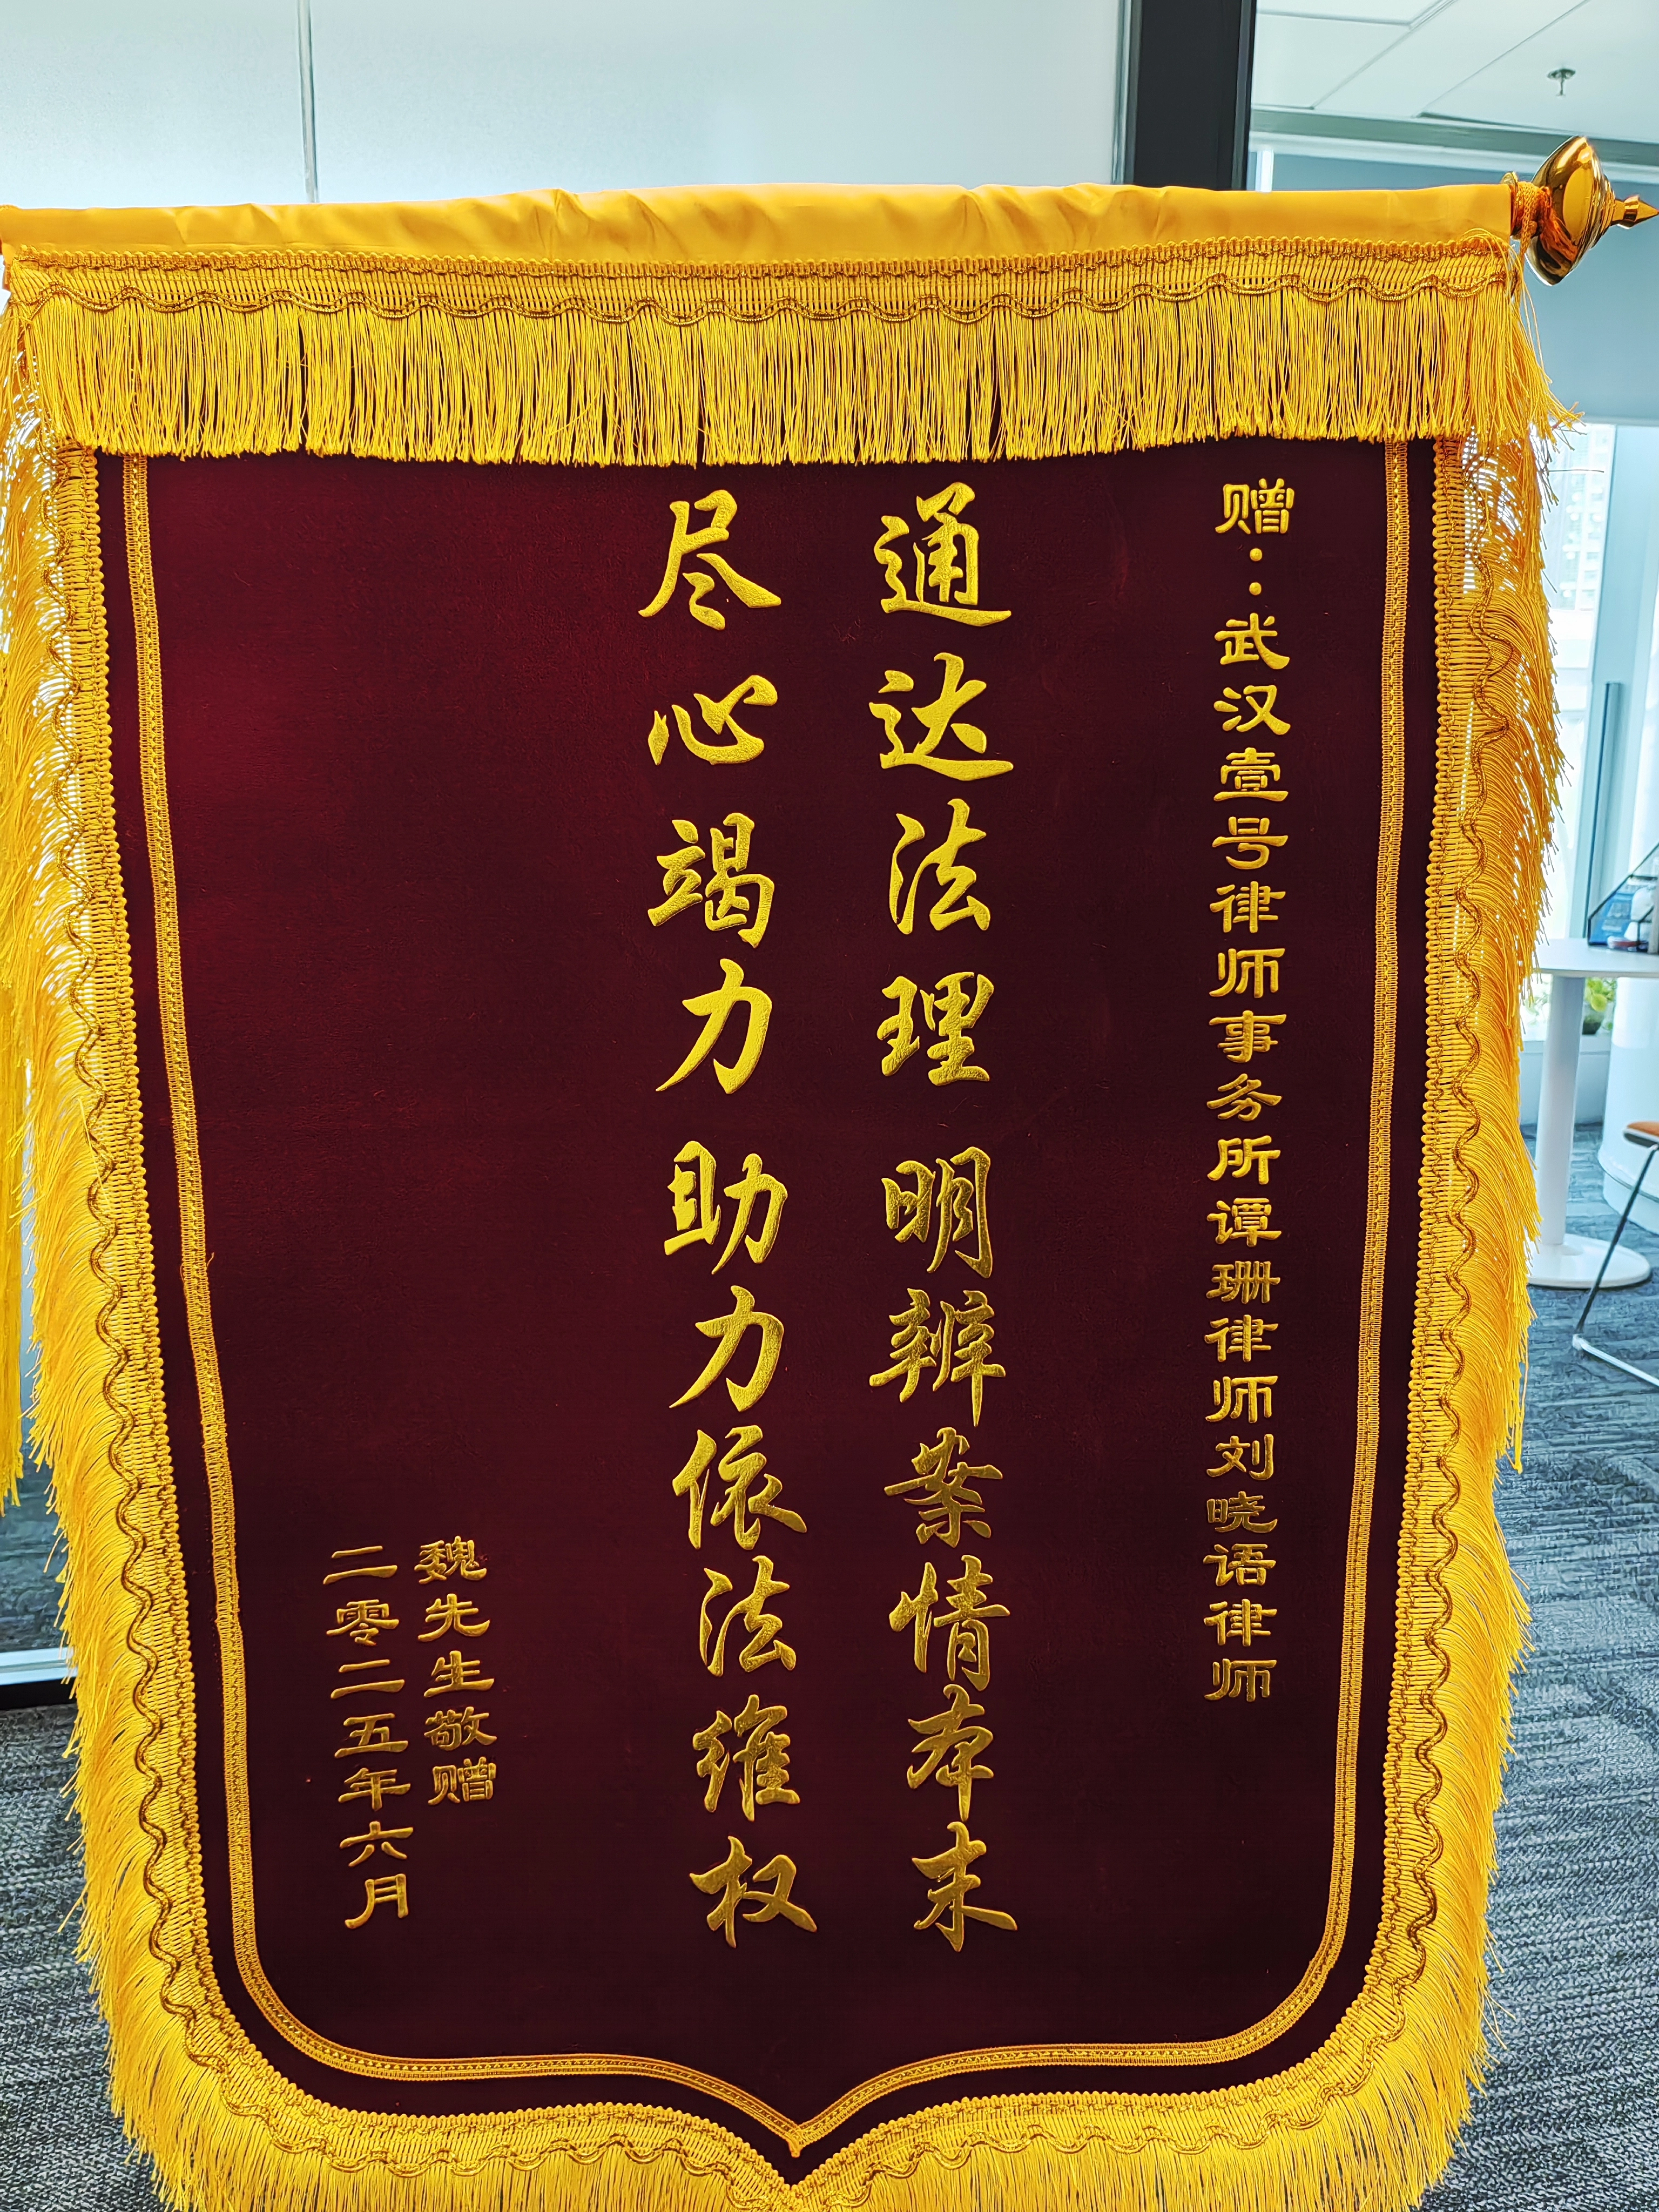 赠：武汉壹号律师事务所谭珊律师刘晓语律师
通达法理 明辨案情本末
尽心竭力 助力依法维权
魏先生敬赠
二零二五年六月